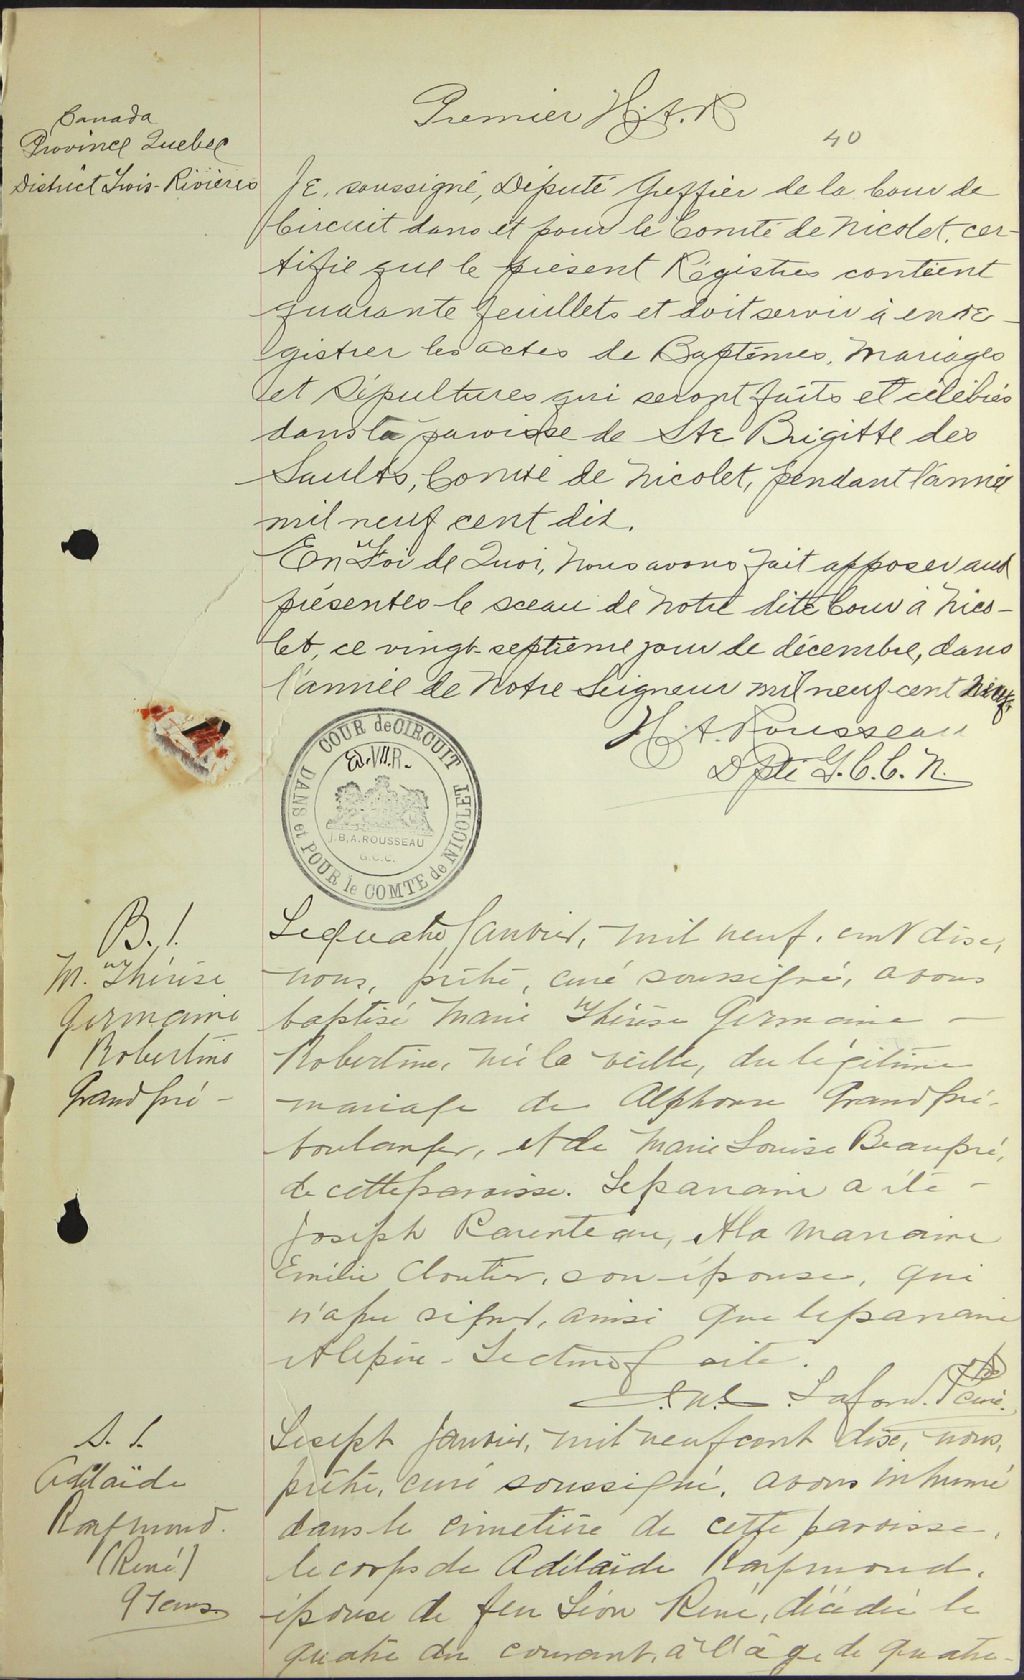 Premier H.A.R
40
Canada
Province Quebec
District Trois-Rivières
Je, soussigné, Député Greffier de la Cour de
Circuit dans et pour le Comté de Nicolet, cer-
tifie que le présent Régistres contient
quarante feuillets et doit servir à enre-
gistrer les actes de Baptêmes, Mariages
et Sépultures qui seront faits et célébrés
dans la paroisse de Ste Brigitte des
Saults, Comté de Nicolet, pendant l'année
mil neuf cent dix.
En Foi de Quoi, nous avons fait apposer aux
présentes le sceau de notre dite Cour à Nico-
let, ce vingt-septième jour de décembre, dans
l'année de Notre Seigneur mil neuf cent neuf.
H.A. Rousseau
Dpté G.C.C.N.
COUR de CIRCUIT
DANS et POUR le COMTE de NICOLET
Ed. VII. R.
J.B.A. ROUSSEAU
G.C.C.
B. 1.
M. Thérèse
Germaine
Robertine
Grandpré -
Le quatre Janvier, mil neuf cent dise,
nous, prêtre, curé soussigné, avons
baptisé Marie Thérèse Germaine -
Robertine, née la veille, du légitime
mariage de Alphonse Grandpré -
boulanger, et de Marie Louise Beaupré,
de cette paroisse. Le parrain a été -
Joseph Parenteau, et la marraine
Emélie Cloutier, son épouse, qui
n'a pu signer, ainsi que le parrain
et le père - Lecture faite.
Lafond, Ptre curé.
S. 1.
Adélaïde
Raymond.
(René)
91 ans
Le sept Janvier, mil neuf cent dise, nous,
prêtre, curé soussigné, avons inhumé
dans le cimetière de cette paroisse,
le corps de Adélaïde Raymond,
épouse de feu Léon René, décédée le
quatre du courant, à l'âge de quatre-